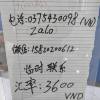 电话:0375450098(VND)
Zalo
微信:15820200612
临时联系
汇率:3600
VND